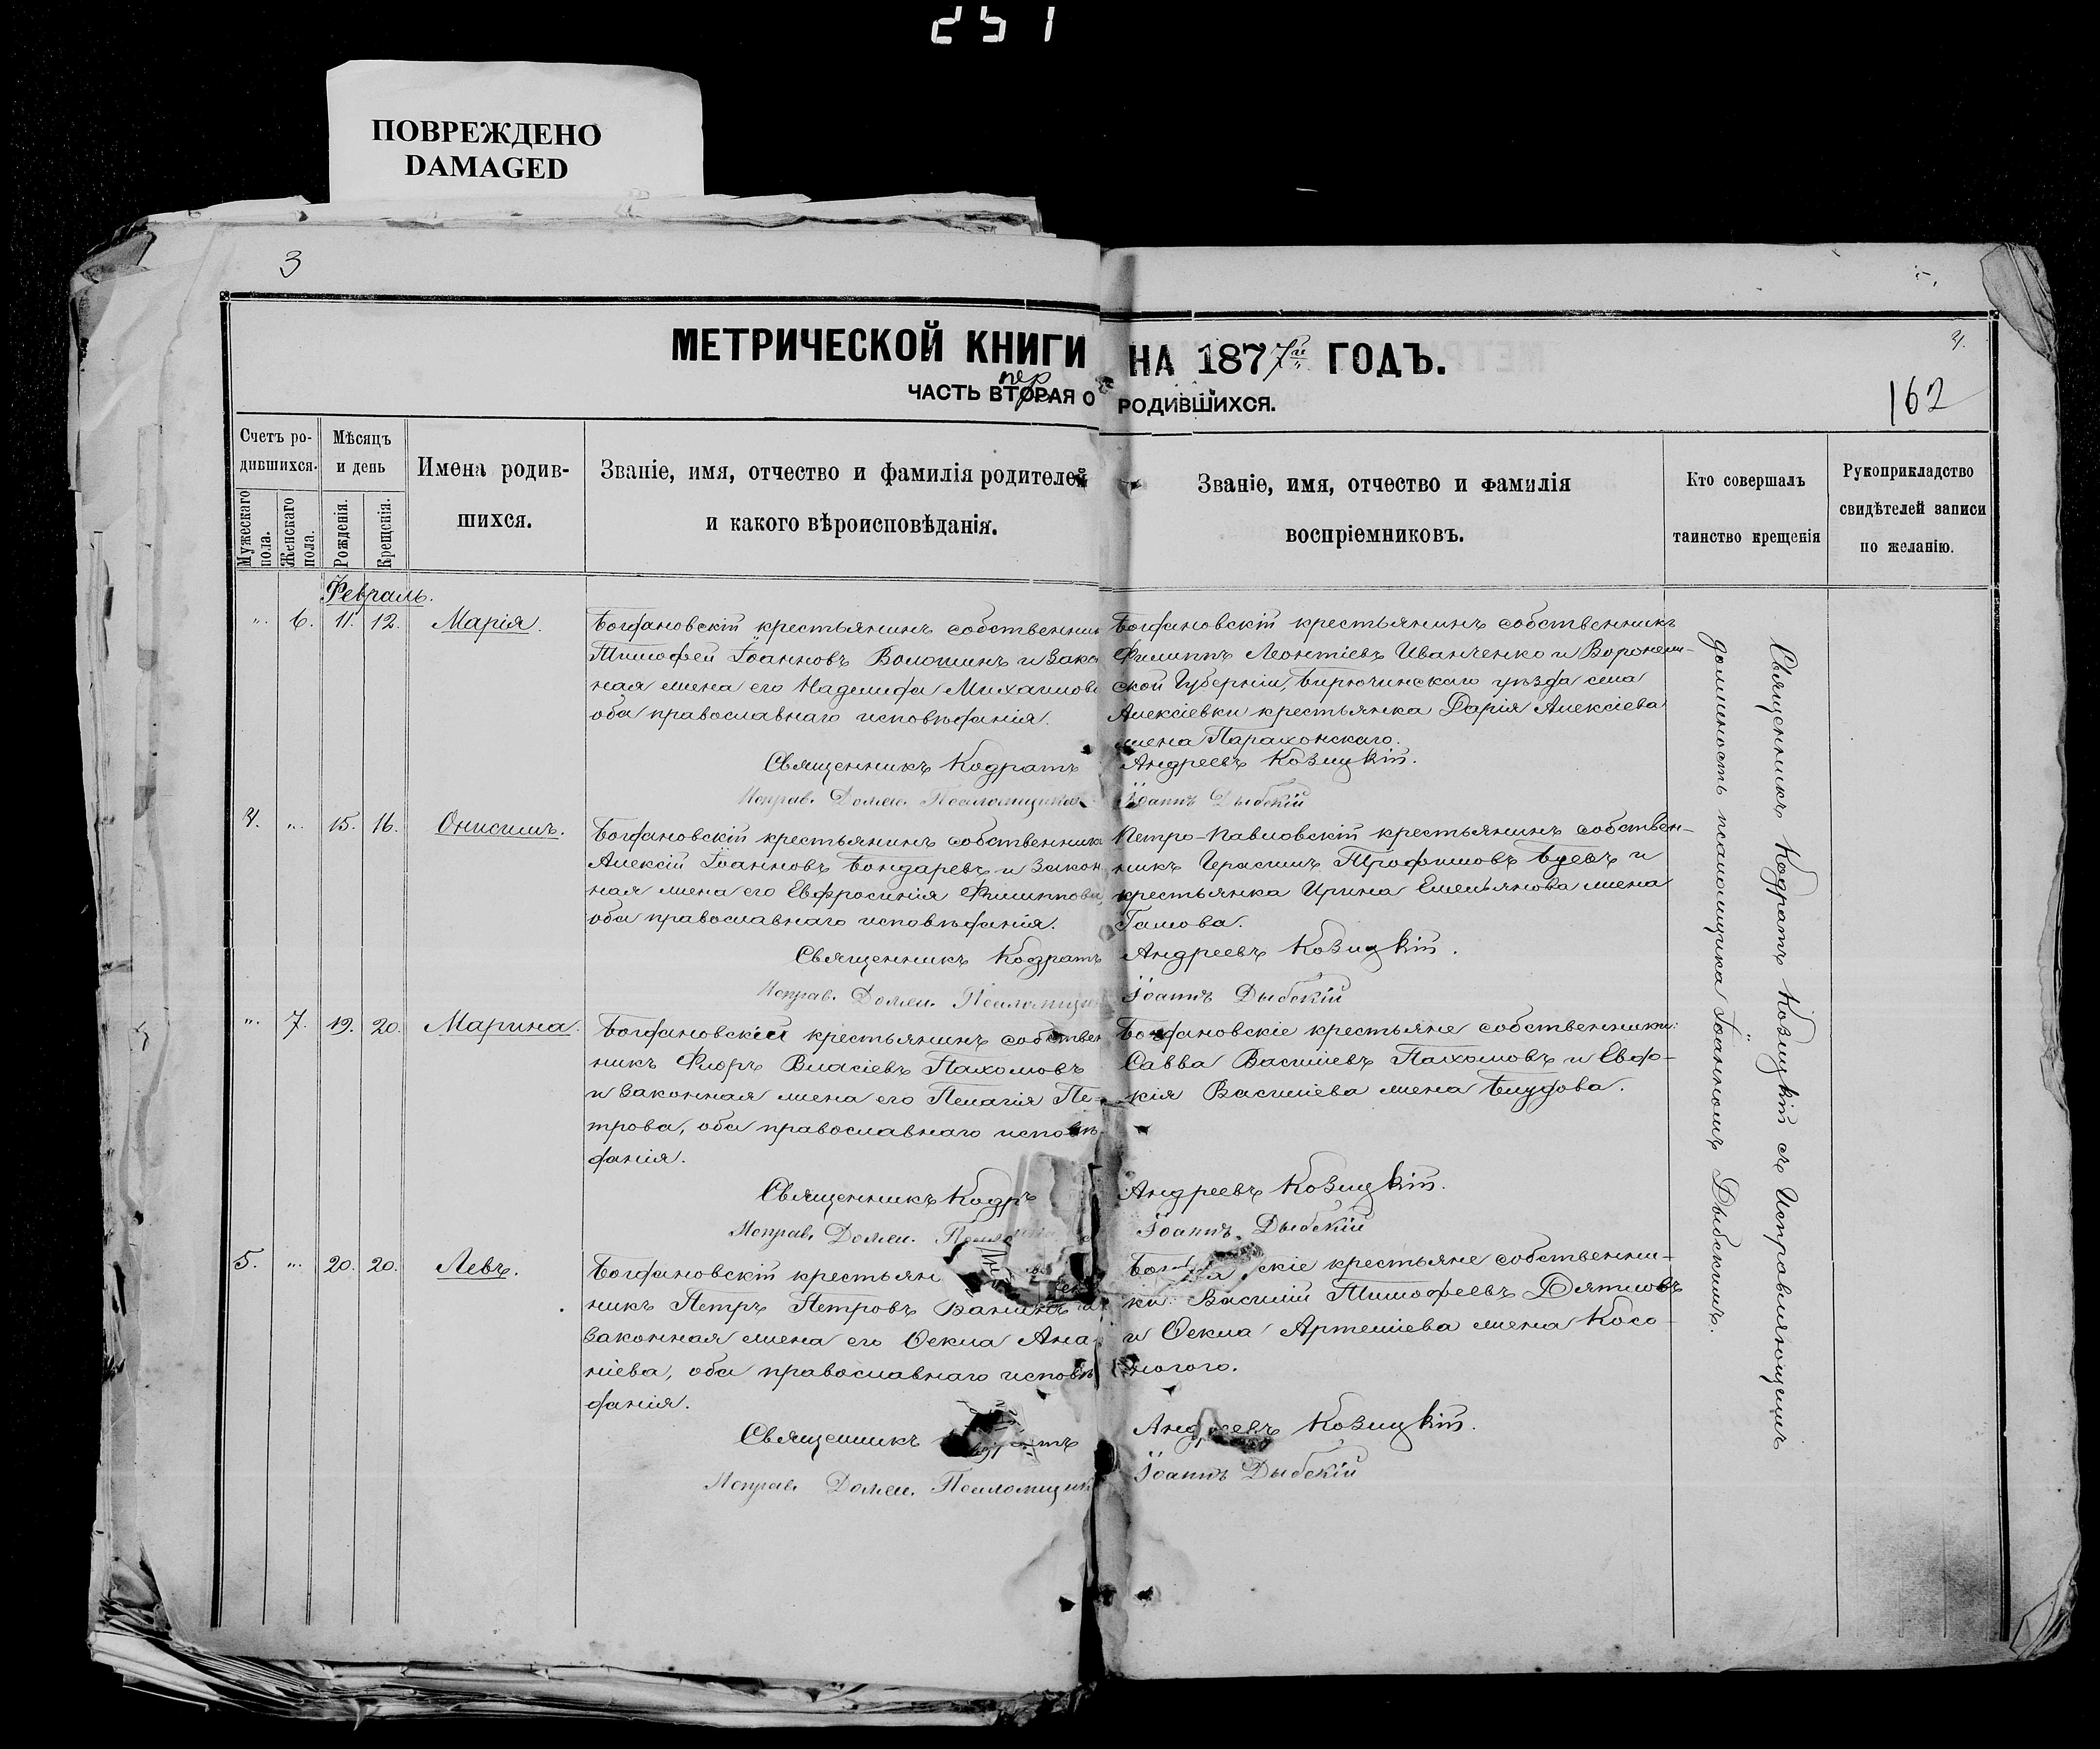 251
ПОВРЕЖДЕНО
DAMAGED
3
МЕТРИЧЕСКОЙ КНИГИ НА 1877й ГОДЪ.
пер
ЧАСТЬ ВТОРАЯ О РОДИВШИХСЯ.
4.
162
Счетъ ро-
дившихся.
Мужескаго пола.
Женскаго пола.
Мѣсяцъ
и день
Рожденія.
Крещенія.
Имена родив-
шихся.
Званіе, имя, отчество и фамилія родителей
и какого вѣроисповѣданія.
Званіе, имя, отчество и фамилія
воспріемниковъ.
Кто совершалъ
таинство крещенія
Рукоприкладство
свидѣтелей записи
по желанію.
Февраль.
". 6. 11. 12. Марія.
Богдановскій крестьянинъ собственник
Тимофей Іоанновъ Волошинъ и зако
ная жена его Надежда Михаилов
оба православнаго исповѣданія.
Богдановскій крестьянинъ собственникъ
Филиппъ Леонтіевъ Иванченко и Воронеж-
ской Губерніи, Бирючинскаго уѣзда села
Алексіевки крестьянка Дарія Алексіева
жена Парахонскаго.
Священникъ Кодратъ Андреевъ Козицкій.
Исправ. Долж. Псаломщика Іоаннъ Дыбскій
4. ". 15. 16. Онисимъ.
Богдановскій крестьянинъ собственник
Алексій Іоанновъ Бондаревъ и закон
ная жена его Евфросинія Филиппова,
оба православнаго исповѣданія.
Петро-Павловскій крестьянинъ собствен-
никъ Герасимъ Трофимовъ Буевъ и
крестьянка Ирина Емельянова жена
Гамова.
Священникъ Кодратъ Андреевъ Козицкій.
Исправ. Долж. Псаломщи Іоаннъ Дыбскій
". 7. 19. 20. Марина.
Богдановскій крестьянинъ собствен
никъ Флоръ Власіевъ Пахомовъ
и законная жена его Пелагія Пе-
трова, оба православнаго исповѣ-
данія.
Богдановскіе крестьяне собственники:
Савва Василіевъ Пахомовъ и Евдо-
кія Василіева жена Блудова.
Священникъ Кодр Андреевъ Козицкій.
Исправ. Долж. Іоаннъ Дыбскій
5. ". 20. 20. Левъ.
Богдановскій крестьян
никъ Петръ Петровъ Ванинъ и
законная жена его Ѳекла Ана-
ніева, оба православнаго исповѣ
данія.
скіе крестьяне собственни-
ки: Василій Тимофеевъ Дятловъ
и Ѳекла Артеміева жена Косо-
ногого.
Священникъ Андреевъ Козицкій.
Исправ. Долж. Псаломщик Іоаннъ Дыбскій
Священникъ Кодратъ Козицкій съ Исправляющимъ
должность псаломщика Іоанномъ Дыбскимъ.